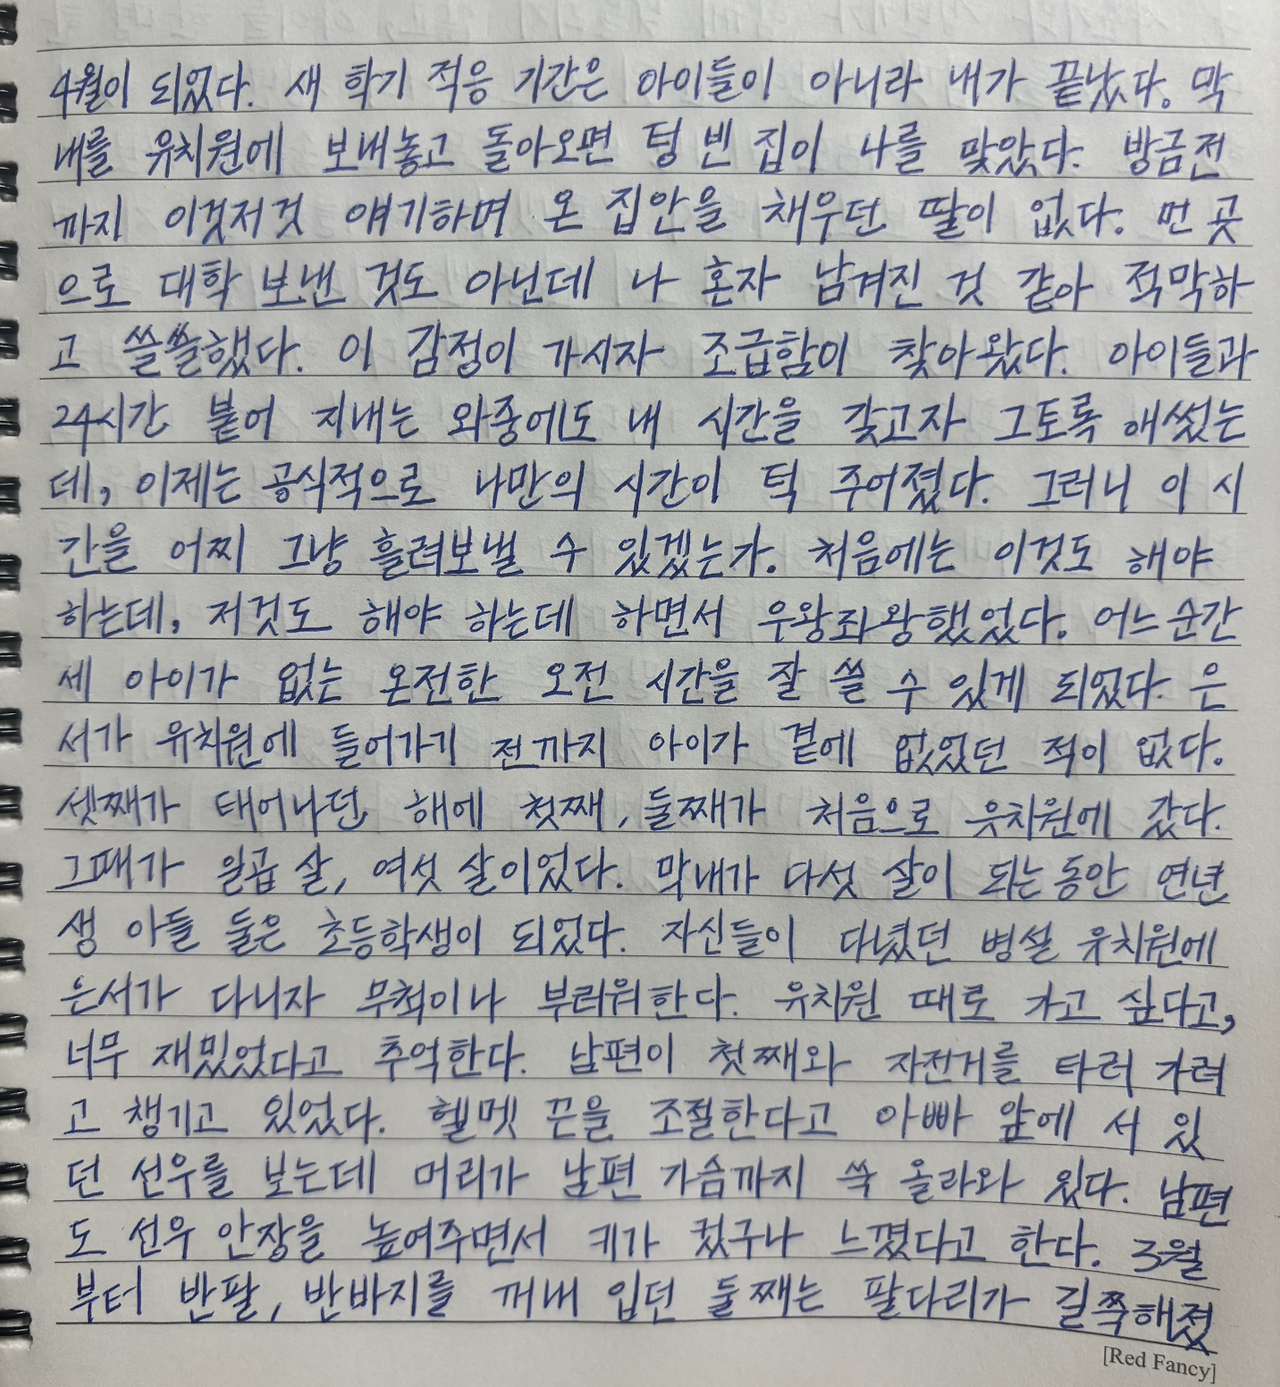 4월이 되었다. 새 학기 적응 기간은 아이들이 아니라 내가 끝났다. 막
내를 유치원에 보내놓고 돌아오면 텅 빈 집이 나를 맞았다. 방금전
까지 이것저것 얘기하며 온 집안을 채우던 딸이 없다. 먼 곳
으로 대학 보낸 것도 아닌데 나 혼자 남겨진 것 같아 적막하
고 쓸쓸했다. 이 감정이 가시자 조급함이 찾아왔다. 아이들과
24시간 붙어 지내는 와중에도 내 시간을 갖고자 그토록 애썼는
데, 이제는 공식적으로 나만의 시간이 턱 주어졌다. 그러니 이 시
간을 어찌 그냥 흘려보낼 수 있겠는가. 처음에는 이것도 해야
하는데, 저것도 해야 하는데 하면서 우왕좌왕했었다. 어느순간
세 아이가 없는 온전한 오전 시간을 잘 쓸 수 있게 되었다. 은
서가 유치원에 들어가기 전까지 아이가 곁에 없었던 적이 없다.
셋째가 태어나던 해에 첫째, 둘째가 처음으로 유치원에 갔다.
그때가 일곱 살, 여섯 살이었다. 막내가 다섯 살이 되는동안 연년
생 아들 둘은 초등학생이 되었다. 자신들이 다녔던 병설 유치원에
은서가 다니자 무척이나 부러워한다. 유치원 때로 가고 싶다고,
너무 재밌었다고 추억한다. 남편이 첫째와 자전거를 타러 가려
고 챙기고 있었다. 헬멧 끈을 조절한다고 아빠 앞에 서 있
던 선우를 보는데 머리가 남편 가슴까지 쑥 올라와 있다. 남편
도 선우 안장을 높여주면서 키가 컸구나 느꼈다고 한다. 3월
부터 반팔, 반바지를 꺼내 입던 둘째는 팔다리가 길쭉해졌
[Red Fancy]